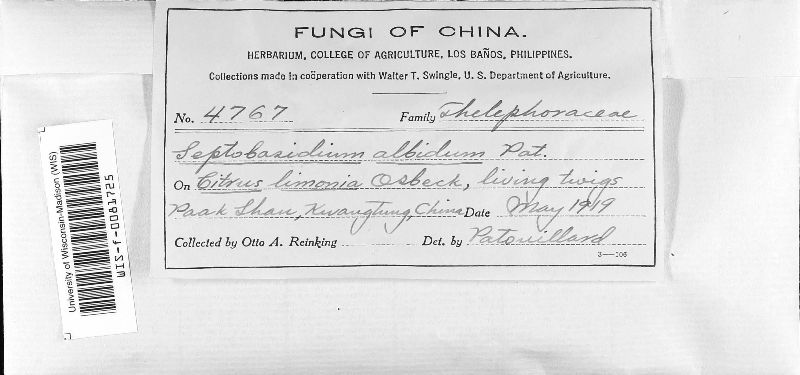 FUNGI OF CHINA.
HERBARIUM, COLLEGE OF AGRICULTURE, LOS BAÑOS, PHILIPPINES.
Collections made in coöperation with Walter T. Swingle, U. S. Department of Agriculture.
No. 4767 Family Thelephoraceae
Septobasidium albidum Pat.
On Citrus limonia Osbeck, living twigs
Paak Shan, Kwangtung, China Date May 1919
Collected by Otto A. Reinking Det. by Patouillard
3—106
University of Wisconsin-Madison (WIS)
WIS-f-0081725